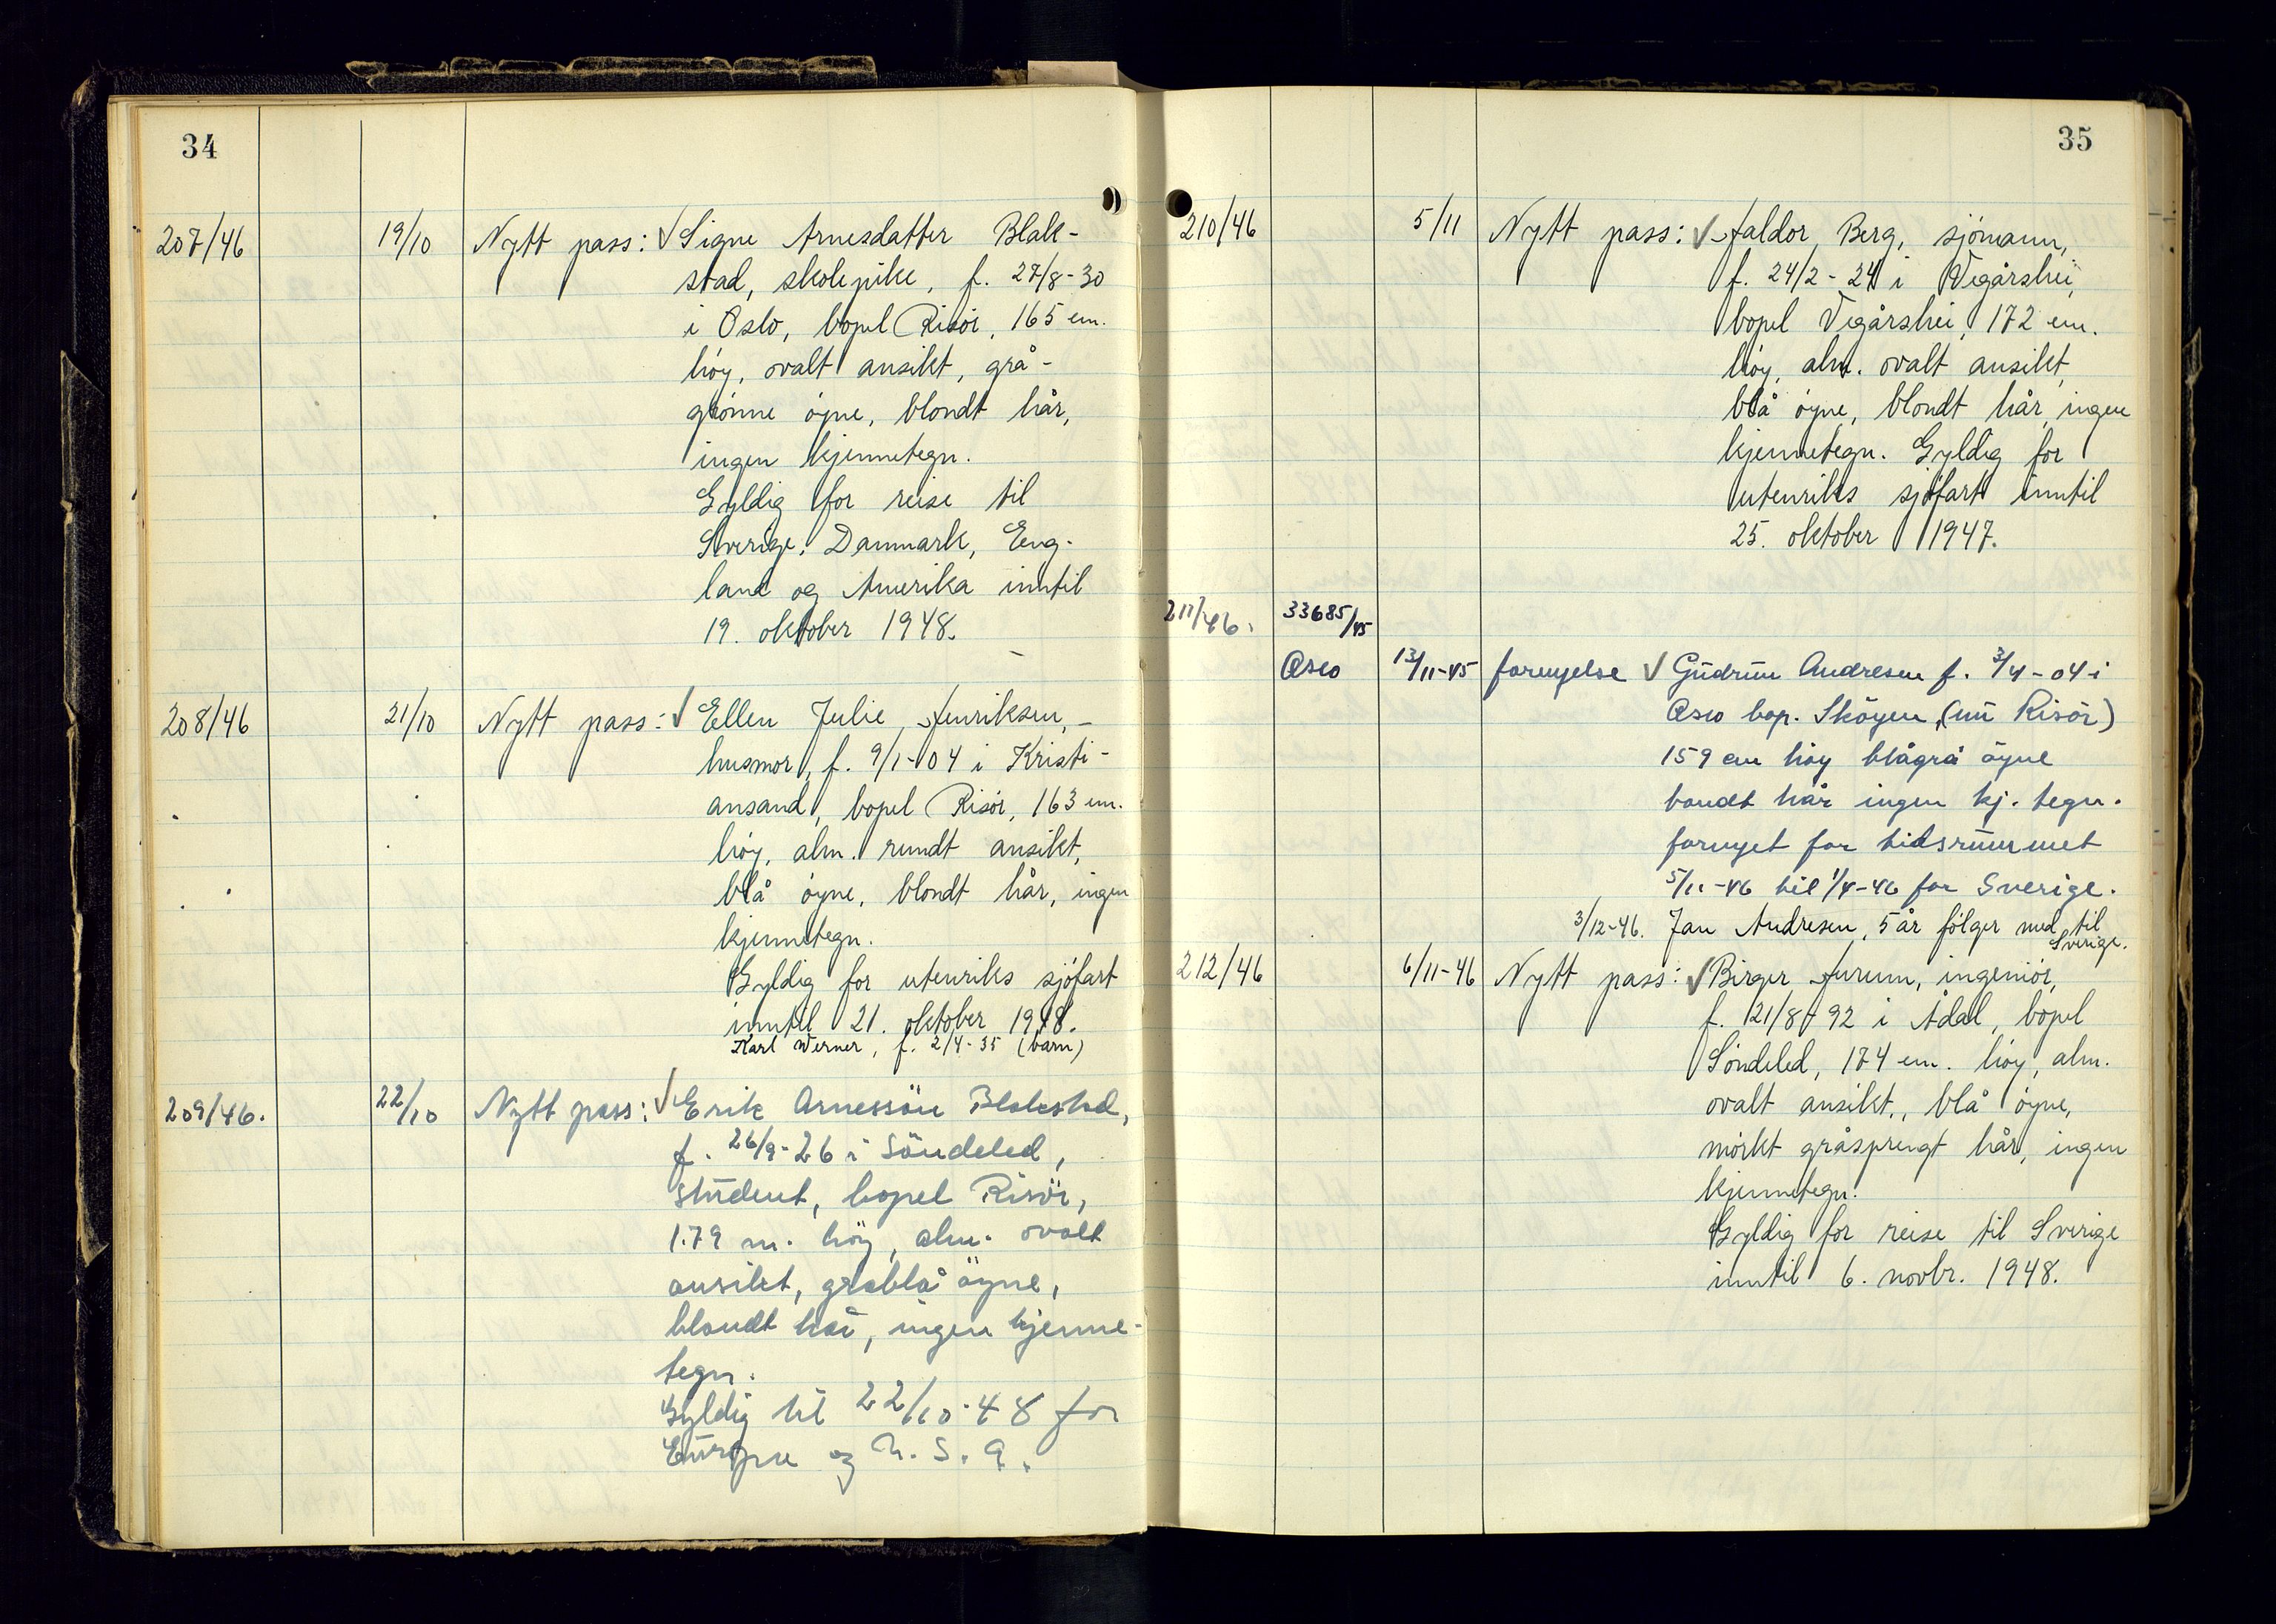 34
207/46 19/10 Nytt pass: √ Signe Arnesdatter Blak-
stad, skolepike, f. 27/8-30
i Oslo, bopel Risör, 165 cm.
höy, ovalt ansikt, grå-
grönne öyne, blondt hår,
ingen kjennetegn.
Gyldig for reise til
Sverige, Danmark, Eng-
land og Amerika inntil
19. oktober 1948.
208/46 21/10 Nytt pass: √ Ellen Julie Henriksen,
husmor, f. 9/1-04 i Kristi-
ansand, bopel Risör, 163 cm.
höy, alm. rundt ansikt,
blå öyne, blondt hår, ingen
kjennetegn.
Gyldig for utenriks sjöfart
inntil 21. oktober 1948.
Karl Werner, f. 2/4-35 (barn)
209/46. 22/10 Nytt pass: √ Erik Arnessön Blakstad,
f. 26/9-26 i Söndeled,
student, bopel Risör,
1.79 m. höy, alm. ovalt
ansikt, gråblå öyne,
blondt hår, ingen kjenne-
tegn.
Gyldig til 22/10-48 for
Europa og U.S.A.
35
210/46 5/11 Nytt pass: √ Haldor Berg, sjömann,
f. 24/2-24 i Vegårshei,
bopel Vegårshei, 172 cm.
höy, alm. ovalt ansikt,
blå öyne, blondt hår, ingen
kjennetegn. Gyldig for
utenriks sjöfart inntil
25. oktober 1947.
211/46. 33685/45
Oslo 13/11-45 fornyelse √ Gudrun Andresen f. 3/4-04 i
Oslo bop. Sköyen, (nu Risör)
159 cm höy blågrå öyne
bondt hår ingen kj. tegn.
fornyet for tidsrummet
5/11-46 til 1/4-46 for Sverige.
3/12-46. Jan Andresen, 5 år fölger med til
Sverige.
212/46 6/11-46 Nytt pass: √ Birger Hurum, ingeniör,
f. 21/8-92 i Ådal, bopel
Söndeled, 174 cm. höy, alm.
ovalt ansikt, blå öyne,
mörkt gråsprengt hår, ingen
kjennetegn.
Gyldig for reise til Sverige
inntil 6. novbr. 1948.